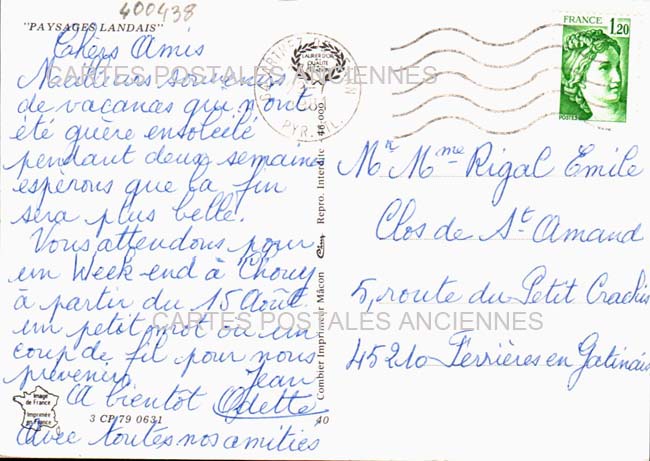 400438
"PAYSAGES LANDAIS"
Chers Amis
Meilleurs souvenirs
de vacances qui n'ont
été guère ensoleillé
pendant deux semaines
espérons que la fin
sera plus belle.
Vous attendons pour
un Week-end à Chouy
à partir du 15 Août
un petit mot ou un
coup de fil pour nous
prévenir Jean
A bientôt Odette
Avec toutes nos amitiés
Image
de France
Imprimée
en France
3 CP 79 0631
40
Combier Imprimeur Mâcon Cim Repro. Interdite 46-009
PYR. ATL.
FRANCE
1,20
POSTES
Mr Mme Rigal Emile
Clos de St Amand
5, route du Petit Crachis
45210 Ferrières en Gatinais
CARTES POSTALES ANCIENNES
CARTES POSTALES ANCIENNES